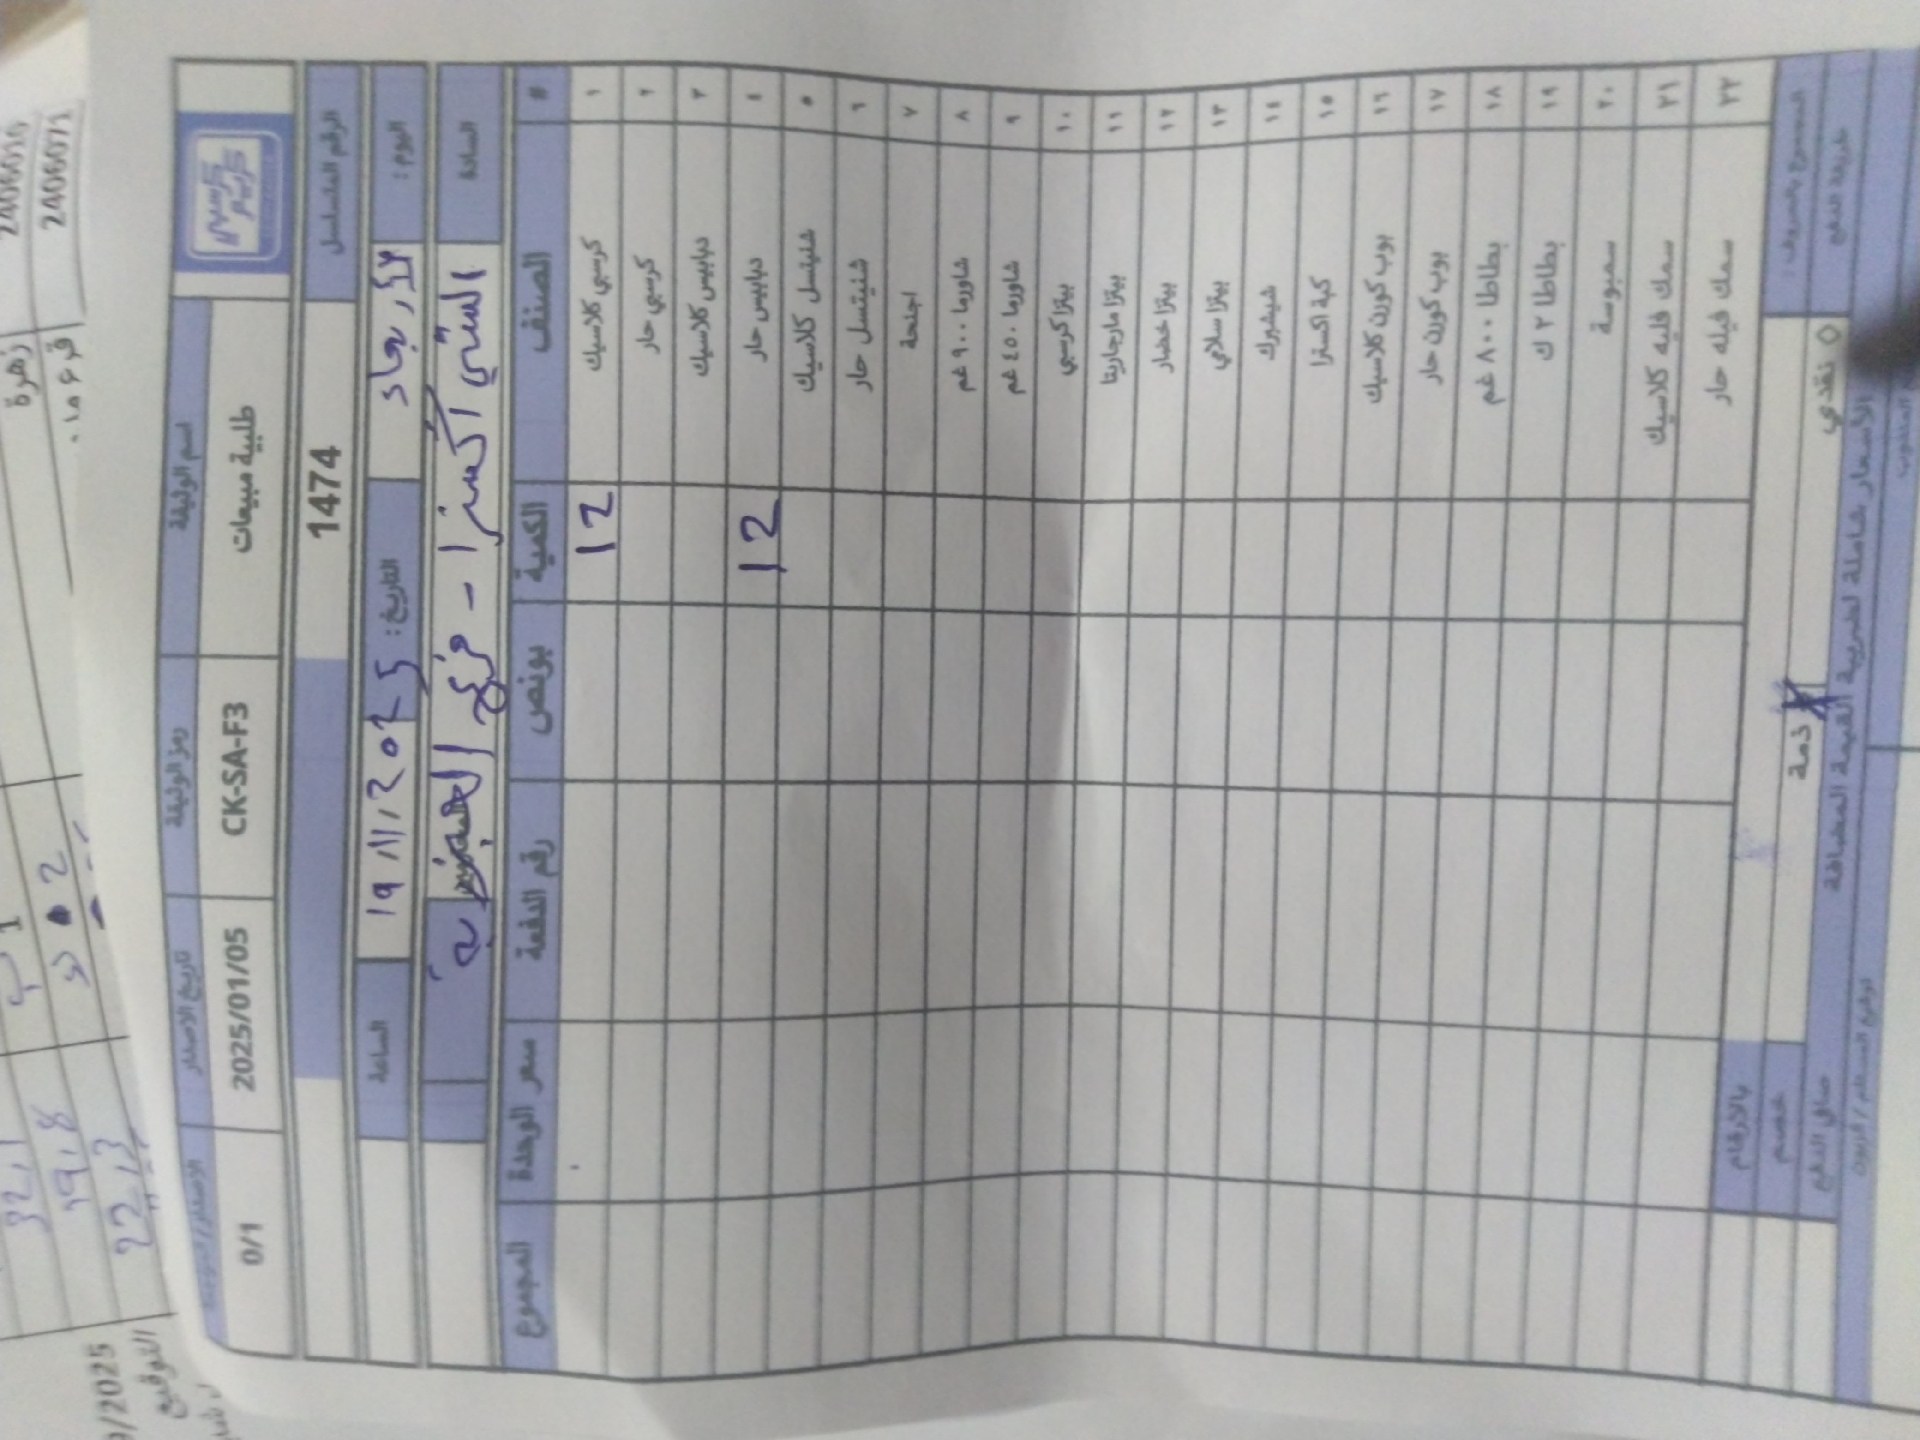 كرسبي
كريم
اسم الوثيقة رمز الوثيقة تاريخ الاصدار
طلبية مبيعات CK-SA-F3 2025/01/05 0/1
الرقم المتسلسل 1474
اليوم: الأربعاء التاريخ: 19/11/2025 الساعة
السادة اكسترا - فرع
# الصنف الكمية بونص رقم الدفعة سعر الوحدة المجموع
١ كرسبي كلاسيك 12
٢ كرسبي حار
٣ دبابيس كلاسيك
٤ دبابيس حار 12
٥ شنيتسل كلاسيك
٦ شنيتسل حار
٧ اجنحة
٨ شاورما ٩٠٠ غم
٩ شاورما ٤٥٠ غم
١٠ بيتزا كرسبي
١١ بيتزا مارجاريتا
١٢ بيتزا خضار
١٣ بيتزا سلامي
١٤ شيشبرك
١٥ كبة اكسترا
١٦ بوب كورن كلاسيك
١٧ بوب كورن حار
١٨ بطاطا ٨٠٠ غم
١٩ بطاطا ٢ ك
٢٠ سمبوسة
٢١ سمك فليه كلاسيك
٢٢ سمك فيله حار
المجموع بالحروف: بالارقام
خصم
طريقة الدفع نقدي ذمة صافي الدفع
الأسعار شاملة لضريبة القيمة المضافة
2406070
2406071
زهرة
32,1
39,8
22,3
9/2025
التوقيع